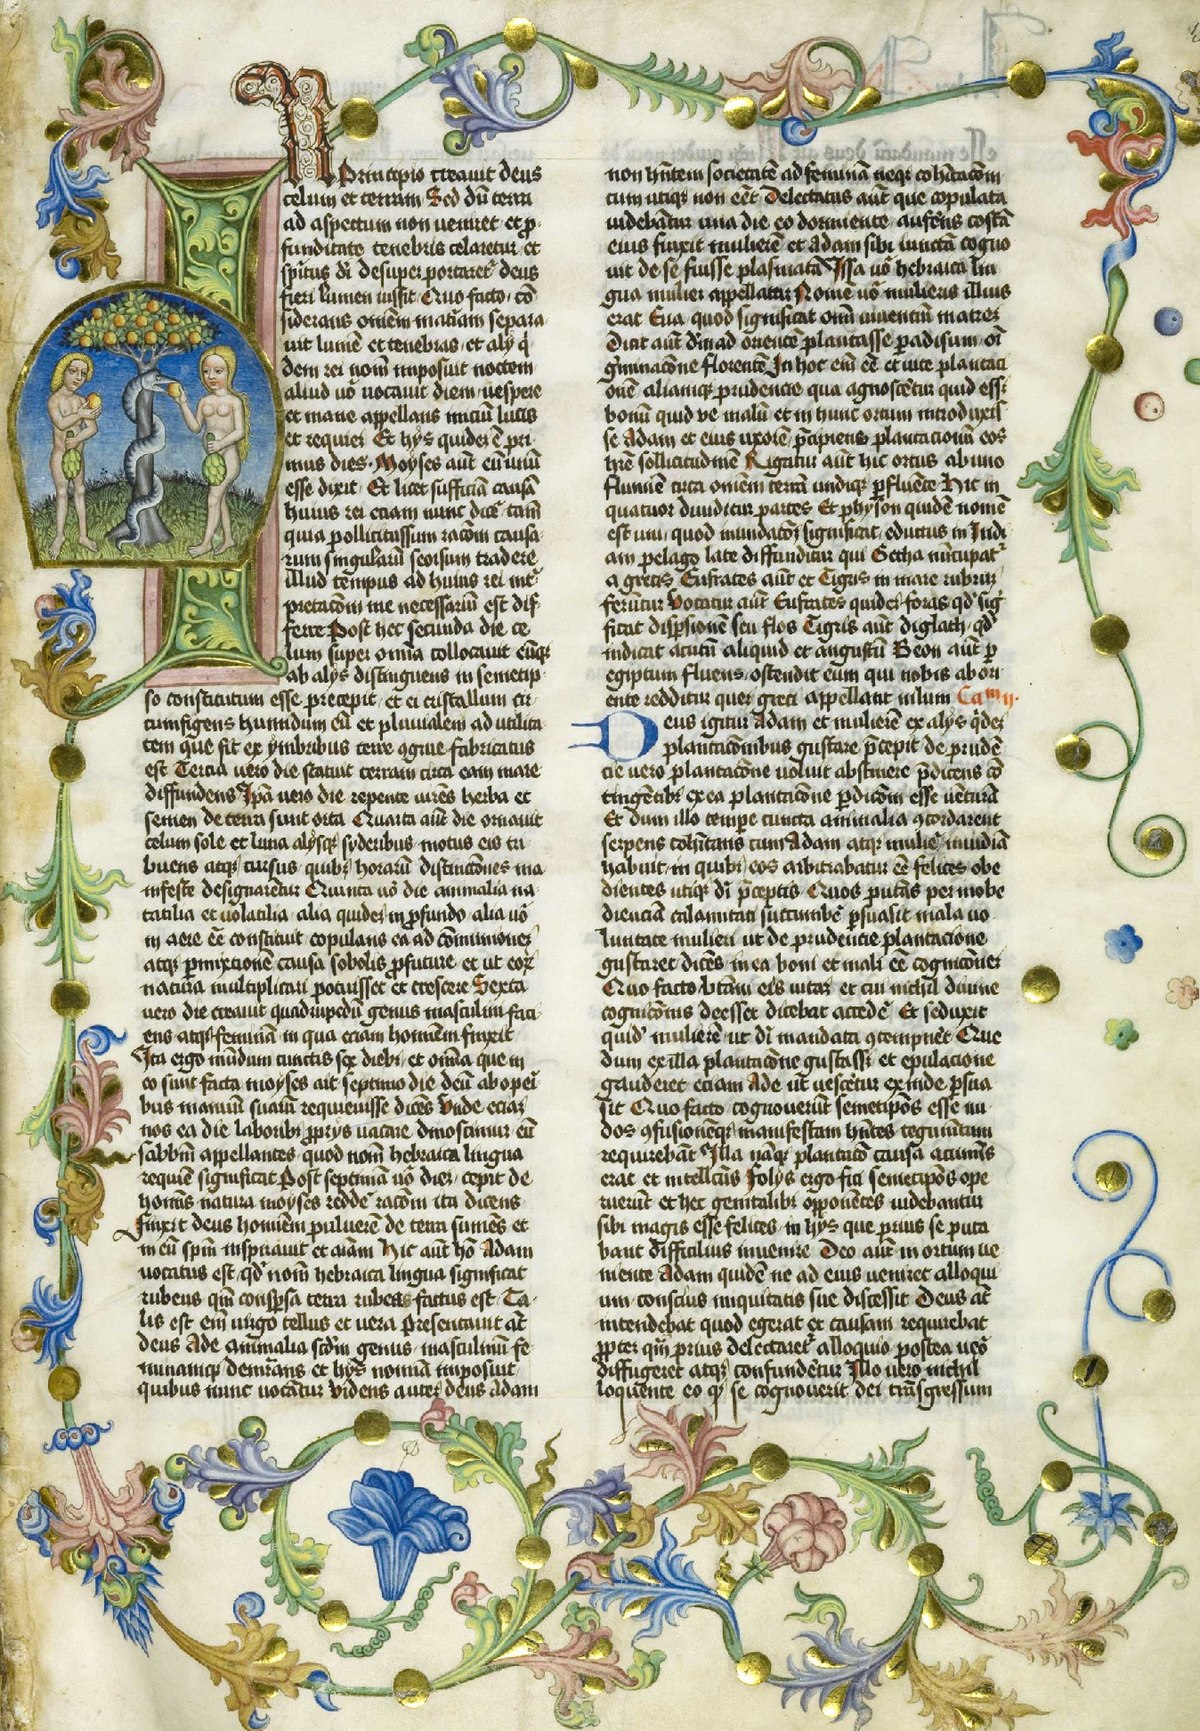 IN Principio creauit deus
celum et terram Sed dū terra
ad aspectum non veniret et p̱-
funditate tenebris celaretur et
spūs dī desuper portaretʳ deus
fieri lumen iussit Quo facto cō
siderans omēm matiam separa-
uit lumē et tenebras et alij q̄
dem rei nom̄ imposuit noctem
aliud vō vocauit diem vespere
et mane appellans iniciū lucis
et requiei Et hijs quidē ē pri-
mus dies Moyses aūt eū vnū
esse dixit Et licet sufficiā causā
huius rei eciam nunc dic̄e tam̄
quia pollicitus sum racōm causa-
rum singularū seorsum tradere
illud tempus ad huius rei int̄-
pretacōm me necessariū est dif-
ferre Post hec secunda die ce
lum super omnia collocauit eūq̨
ab alijs distinguens in semetip-
so constitutum esse precepit et ei cristallum cir-
cumfigens humidum eū et pluuialem ad vtilita-
tem que fit ex ymbribus terre ꝯgrue fabricatus
est Tercia vero die statuit terram circa eam mare
diffundens Ipā vero die repente virēs herba et
semen de terra sunt orta Quarta aūt die ornauit
celum sole et luna alijsq̨ syderibus motus eis tri
buens atq̨ cursus quibꝫ horarū distinctōnes ma-
nifeste designarētur Quinta vō die animalia na-
tatilia et volatilia alia quidē in p̱fundo alia vō
in aere eē constituit copulans ea ad cōmunionē
atq̨ p̱mixtionē causa sobolis p̱future et ut eoꝝ
natura multiplicari potuisset et crescere Sexta
vero die creauit quadrupedū genus masculū faci-
ens atq̨ feminā in qua eciam hominem finxit
Ita ergo mūdum cunctis sex diebꝫ et omīa que in
eo sunt facta moyses ait septimo die deū ab operi
bus manuū suarū requieuisse dicēs Vnde eciaꝫ
nos ea die laboribꝫ p̱prijs vacare dinoscimur eū
sabbm̄ appellantes quod nom̄ hebraica lingua
requiē significat Post septimā vō diē cepit de
homīs natura moyses redde racōm ita dicens
Finxit deus hominem puluerē de terra sumēs et
in eū spm̄ inspirauit et aīam Hic aūt hō Adam
vocatus est qd̄ nom̄ hebraica lingua significat
rubeus qm̄ consp̱sa terra rubea factus est Ta-
lis est em̄ virgo tellus et vera Presentauit aūt
deus Ade animalia scd̄m genus masculinū fe-
mininūq̨ demrans et hijs nomīa imposuit
quibus nunc vocātur Videns autē deus Adam
non hn̄tem societatē ad feminā neq̨ cohītacōm
cum vtiq̨ non eēt Delectatus aūt que copulata
videbātur vna die eo dormiente auferēs costā
eius finxit mulierē et Adam sibi iunctā cogno
uit de se fuisse plasmatā Issa vō hebraica lin
gua mulier appellatur Nomē vō mulieris illius
erat Eua quod significat omīi viuentiū matrē
Dicit aūt dm̄ ad oriente plantasse padisum oī
gīminacōne florentē In hoc em̄ eē et vite plantaci
onē aliamq̨ prudencie qua agnoscētur quid esset
bonū quid ve malū et in hunc ortum introduxis-
se Adam et eius vxorē p̄cipiens plantacionū eos
hr̄e sollicitudinē Rigatur aūt hic ortus ab vno
flumīe circa omēm terrā vndiq̨ p̱fluente Hic in
quatuor diuiditur partes Et physon quidē nomē
est vni quod inundatōꝫ significat eductus in Indi
am pelago late diffunditur qui Getha nūcupatʳ
a grecis Eufrates aūt et Tigris in mare rubrū
ferūtur Vocatur aūt Eufrates quidē foras qd̄ sig
ficat disp̱sionē seu flos Tigris aūt diglach qd̄
indicat acutū aliquid et angustū Beon aūt p̱
egiptum fluens ostendit eum qui nobis ab ori
ente redditur quē greci appellant nilum Camᵐ ij.
Deus igitur Adam et mulierē ex alijs qd̄ē
plantacōnibus gustare p̄cepit de prudē
cie vero plantacōne voluit abstinere p̄dicens cō
tingētibꝫ ex ea plantacōne p̱dicōm esse venturā
Et dum illo tempe cuncta animalia ꝯcordarent
serpens cohītans cum Adam atq̨ mulie inuidiā
habuit in quibꝫ eos arbitrabatur eē felices obe
dientes vtiq̨ dī p̄ceptis Quos putās per inobe
dienciā calamitati succumbē p̱suasit mala vo
luntate mulieri ut de prudencie plantacione
gustaret dicēs in ea boni et mali eē cognicōneꝫ
Quo facto btām eis vitaꝫ et cui nichil diuine
cognicōnis deesset dicebat accedē Et seduxit
quidē mulierē ut dī mandata ꝯtempnēt Que
dum ex illa plantacōne gustasset et epulacione
gauderet eciam Ade ut vescetur exinde p̱sua
sit Quo facto cognouerūt semetip̄os esse nu
dos ꝯfusionēq̨ manifestam hn̄tes tegumtum
requirebāt Illa naq̨ plantacō causa acumīs
erat et intellcūs Folijs ergo fici semetip̄os ope
ruerūt et hec genitalibꝫ opponētes videbantur
sibi magis esse felices in hijs que prius se puta
bant difficilius inuenire Deo aūt in ortum ve
niente Adam quidē ne ad eius veniret alloqui
um conscius iniquitatis sue discessit Deus aūt
intendebat quod egerat et causam requirebat
p̱pter qm̄ prius delectaretʳ alloquio postea vō
diffugeret atq̨ confundētur Illo vero nichil
loquente eo q̱ se cognouerit dei trāsgressum